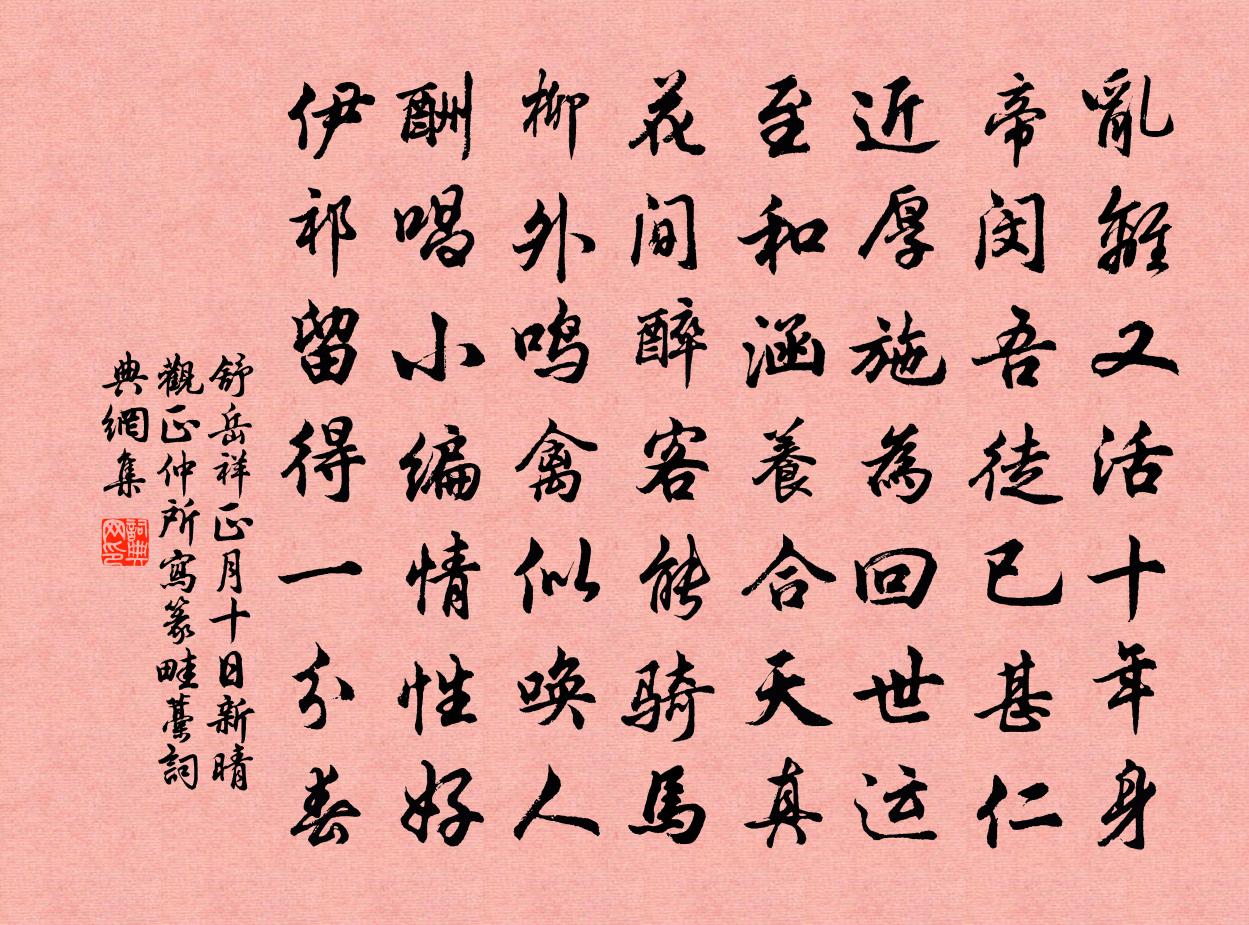 亂離又活十年身
帝闵吾徒已甚仁
近厚施為回世运
至和涵養合天真
花间醉客能騎馬
柳外鸣禽似唤人
酬唱小编情性好
伊祁留得一分春
舒岳祥正月十日新晴
觀正仲所寫篆畦藳詞
典網集
詞典网印